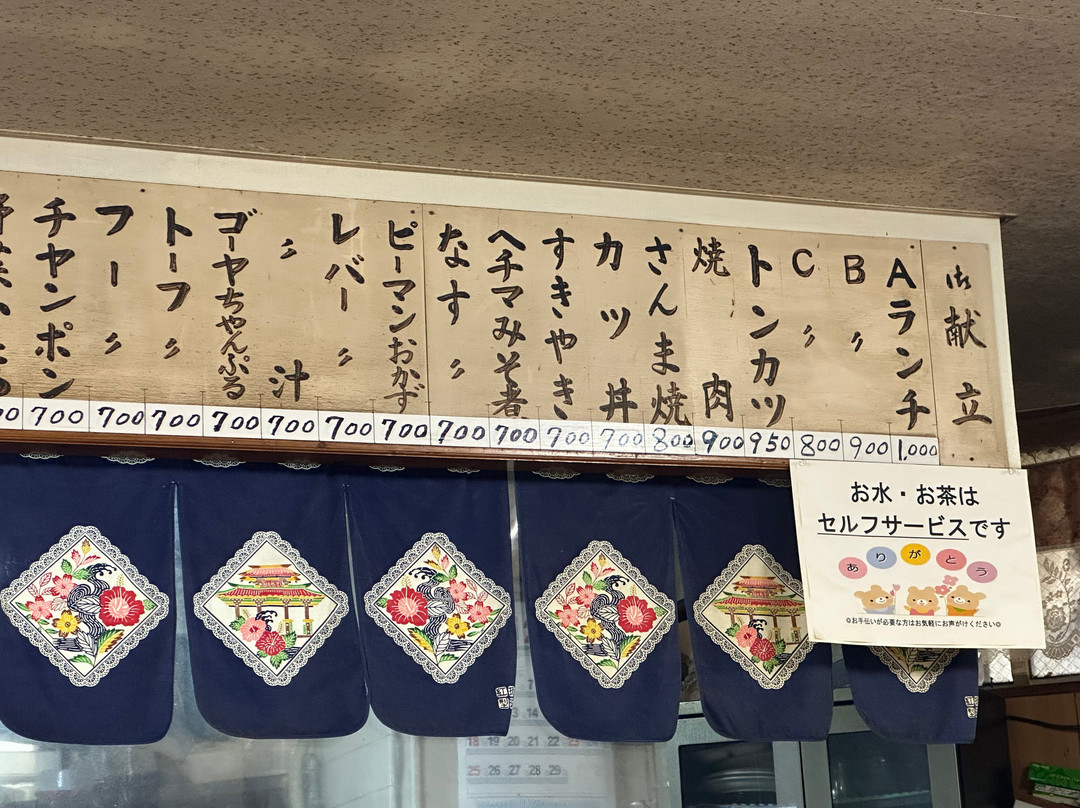 御献立
Aランチ
1,000
B〃
900
C〃
800
トンカツ
950
焼肉
900
さんま焼
800
カツ丼
700
すきやき
700
ヘチマみそ煮
700
なす〃
700
ピーマンおかず
700
レバー〃
700
〃汁
700
ゴーヤちゃんぷる
700
トーフ〃
700
フー〃
700
チャンポン
700
お水・お茶は
セルフサービスです
ありがとう
お手伝いが必要な方はお気軽にお声がけください
14
18 19 20 21 22 23
25 26 27 28 29